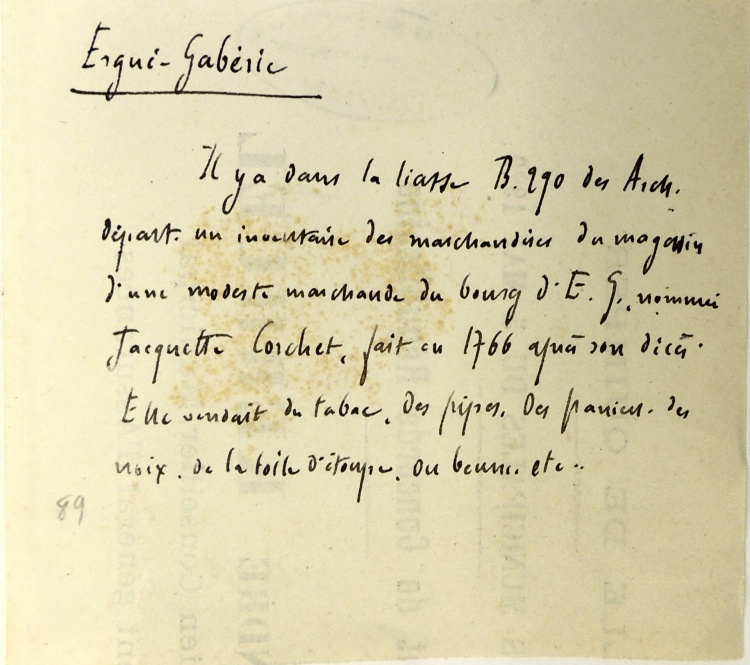 Ergué-Gabéric
Il y a dans la liasse B.290 des Arch.
départ. un inventaire des marchandises du magasin
d'une modeste marchande du bourg d'E. G., nommée
Jacquette Corchet, fait en 1766 après son décès.
Elle vendait du tabac, des pipes, des paniers, des
noix, de la toile d'étoupe, du beurre, etc..
89